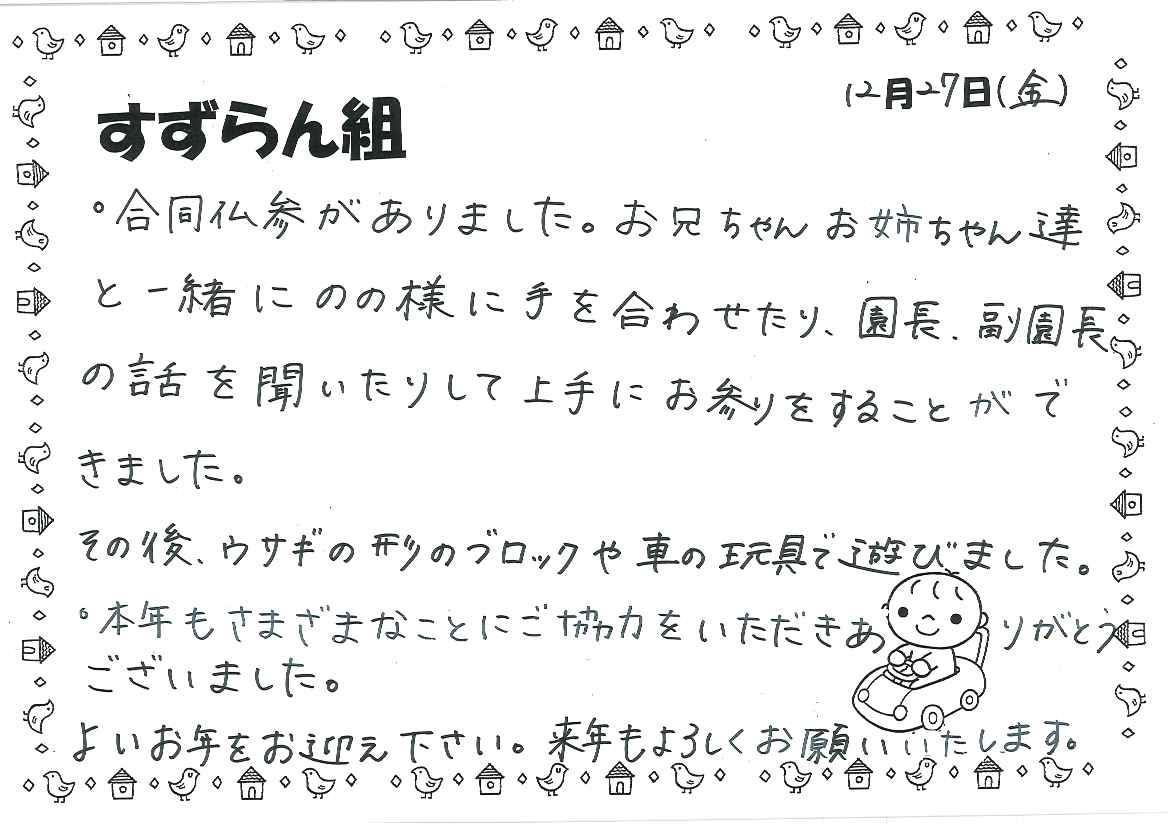 12月27日(金)
すずらん組
°合同仏参がありました。お兄ちゃんお姉ちゃん達
と一緒にののの様に手を合わせたり、園長、副園長
の話を聞いたりして上手にお参りをすることがで
きました。
その後、ウサギの形のブロックや車の玩具で遊びました。
°本年もさまざまなことにご協力をいただきありがとう
ございました。
よいお年をお迎え下さい。来年もよろしくお願いいたします。